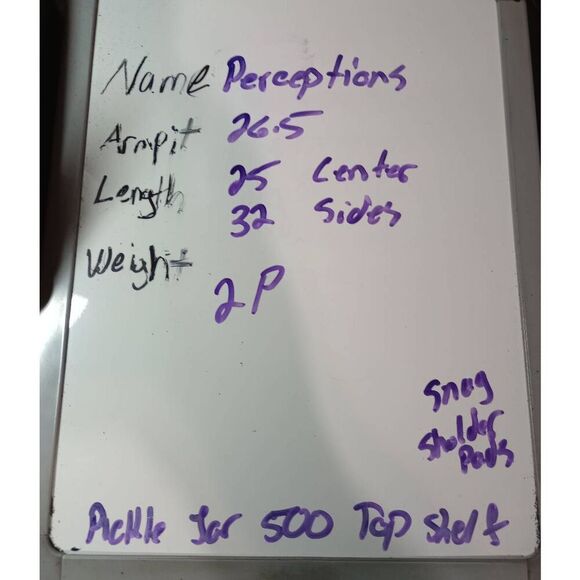 Name Perceptions
Armpit 26.5
Length 25 Center
32 Sides
Weight 2P
Snag
Sholder
Pads
Pickle Jar 500 Top Shelf